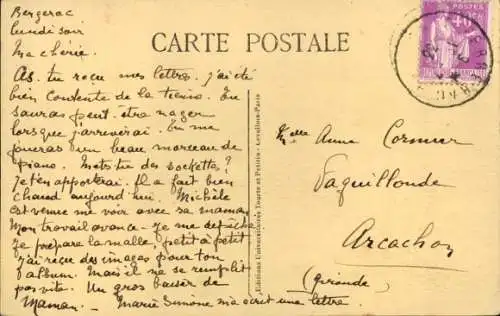 Bergerac
lundi soir
Ma chérie.
As-tu reçu mes lettres. j'ai été
bien contente de la tienne. Tu
sauras peut-être nager
lorsque j'arriverai. Tu me
joueras un beau morceau de
piano. Mets-tu des sockettes?
Je t'en apporterai. Il a fait bien
chaud aujourd'hui. Michèle
est venue me voir avec sa maman.
Mon travail avance - Je me dépêche
Je prépare la malle, petit à petit
j'ai reçu des images pour ton
album. Mais il ne se remplit
pas vite. Un gros baiser de
Maman. - Marie Simone m'a écrit une lettre.
CARTE POSTALE
Editions Universitaires Tourte et Petitin - Levallois-Paris
Melle Anne Cormier
Arcachon
(Gironde)